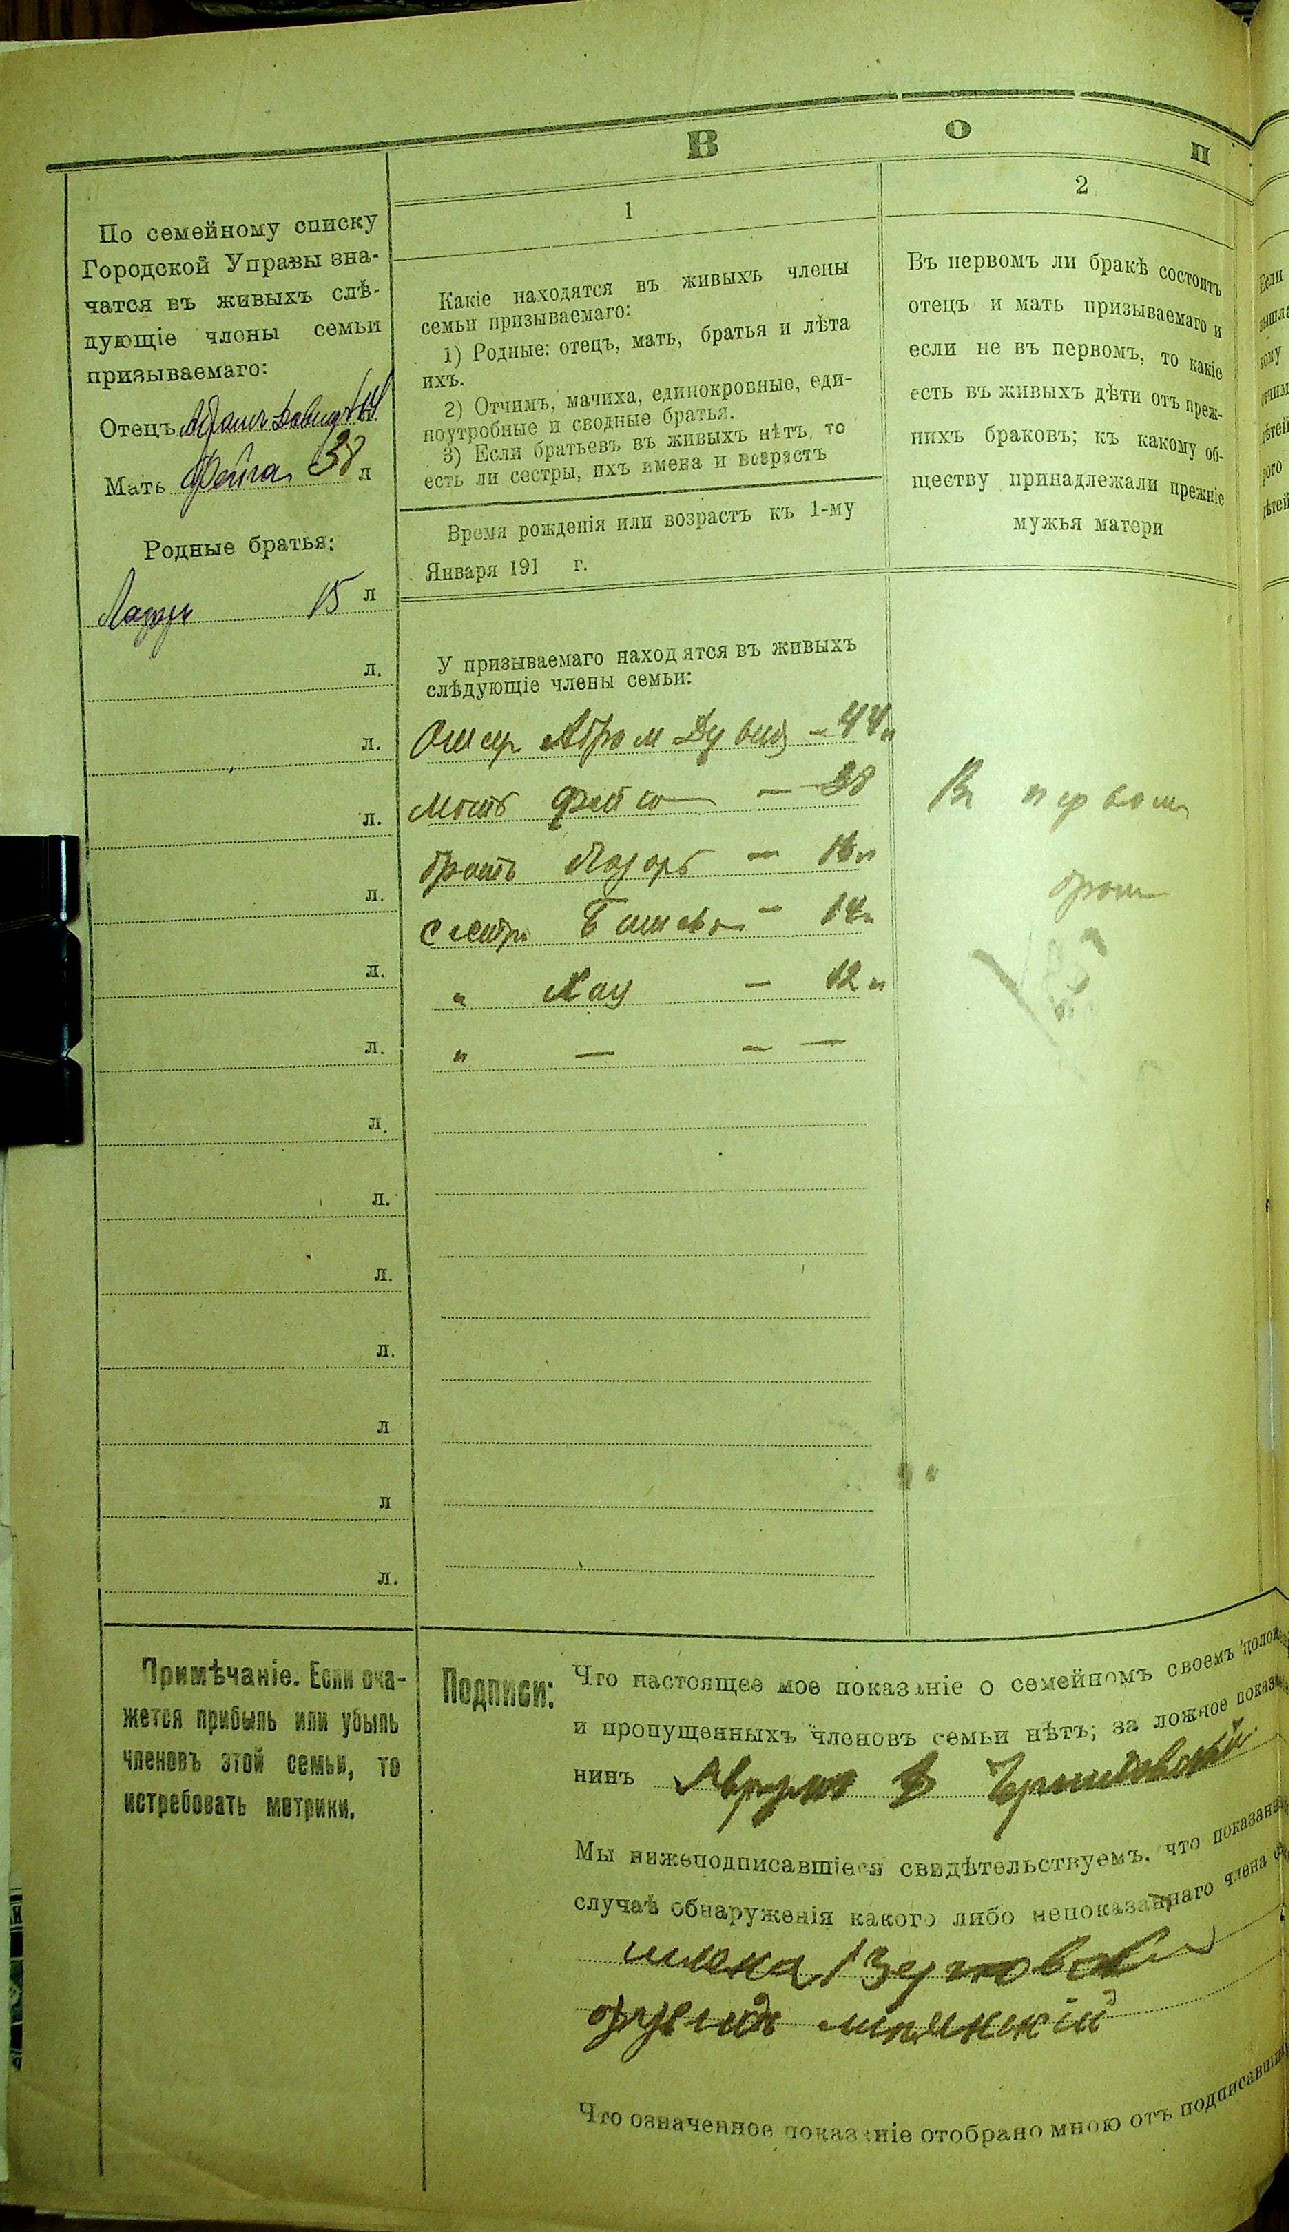 В о п
По семейному списку
Городской Управы зна-
чатся въ живыхъ слѣ-
дующіе члоны семьи
призываемаго:
Отецъ Абрамъ Давидъ 44 л.
Мать Фейга 38 л
Родные братья:
Лазарь 15 л
л.
л.
л.
л.
л.
л.
л.
л.
л.
л.
л
л
л.
1
Какіе находятся въ живыхъ члены
семьи призываемаго:
1) Родные: отецъ, мать, братья и лѣта
ихъ.
2) Отчимъ, мачиха, единокровные, еди-
ноутробные и сводные братья.
3) Если братьевъ въ живыхъ нѣтъ, то
есть ли сестры, ихъ имена и возрастъ
Время рожденія или возрастъ къ 1-му
Января 191 г.
У призываемаго находятся въ живыхъ
слѣдующіе члены семьи:
Отецъ Абрам Дувид - 44 л
Мать Фейга — 38
братъ Лазарь — 16 л
сестра Башева - 14 л
" Хая — 12 л
" — - —
2
Въ первомъ ли бракѣ состоитъ
отецъ и мать призываемаго и
если не въ первомъ, то какіе
есть въ живыхъ дѣти отъ преж-
нихъ браковъ; къ какому об-
ществу принадлежали прежніе
мужья матери
В первом
браке
Примѣчаніе. Если ока-
жется прибыль или убыль
членовъ этой семьи, то
истребовать метрики.
Подписи:
Что настоящее мое показаніе о семейномъ своемъ полож
и пропущенныхъ членовъ семьи нѣтъ; за ложное показа
нинъ
Мы нижеподписавшіеся свидѣтельствуемъ. что показан
случаѣ обнаруженія какого либо непоказаннаго члена
Что означенное показаніе отобрано мною отъ подписавши